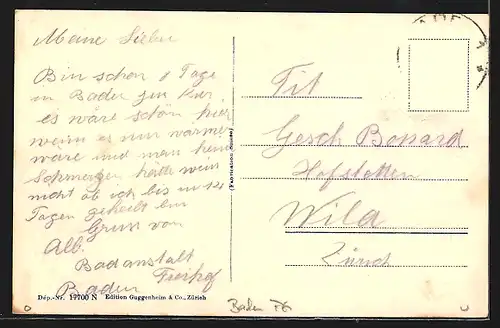 Meine Lieben
Bin schon 8 Tage
in Baden zur Kur
es wäre schön hier
wenn es nur wärmer
wäre und man keine
Schmerzen hätte weis
nicht ob ich bis in 14
Tagen geheilt bin
Gruss von
Alb.
Badanstalt
Freihof
Baden
Tit
Gesch Bossard
Hofstetten
Wila
Zürich
Dép.-Nr. 19700 N Edition Guggenheim & Co., Zürich
Baden